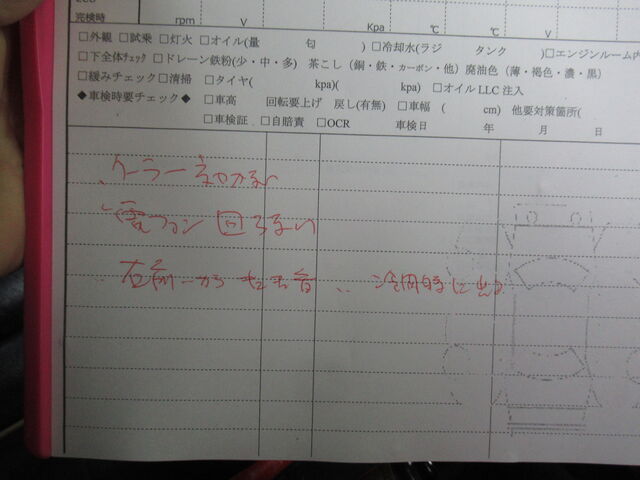 完検時 rpm V Kpa ℃ ℃ V
□外観 □試乗 □灯火 □オイル(量 匂 ) □冷却水(ラジ タンク )□エンジンルーム内
□下全体ﾁｪｯｸ □ドレーン鉄粉(少・中・多) 茶こし（銅・鉄・カーボン・他）廃油色（薄・褐色・濃・黒）
□緩みチェック□清掃 □タイヤ( kpa)( kpa) □オイル LLC 注入
◆車検時要チェック◆ □車高 回転要上げ 戻し(有無) □車幅 ( cm) 他要対策箇所(
□車検証 □自賠責 □OCR 車検日 年 月 日
クーラー
電ファン 回らない
右前から 音 冷間時に出る